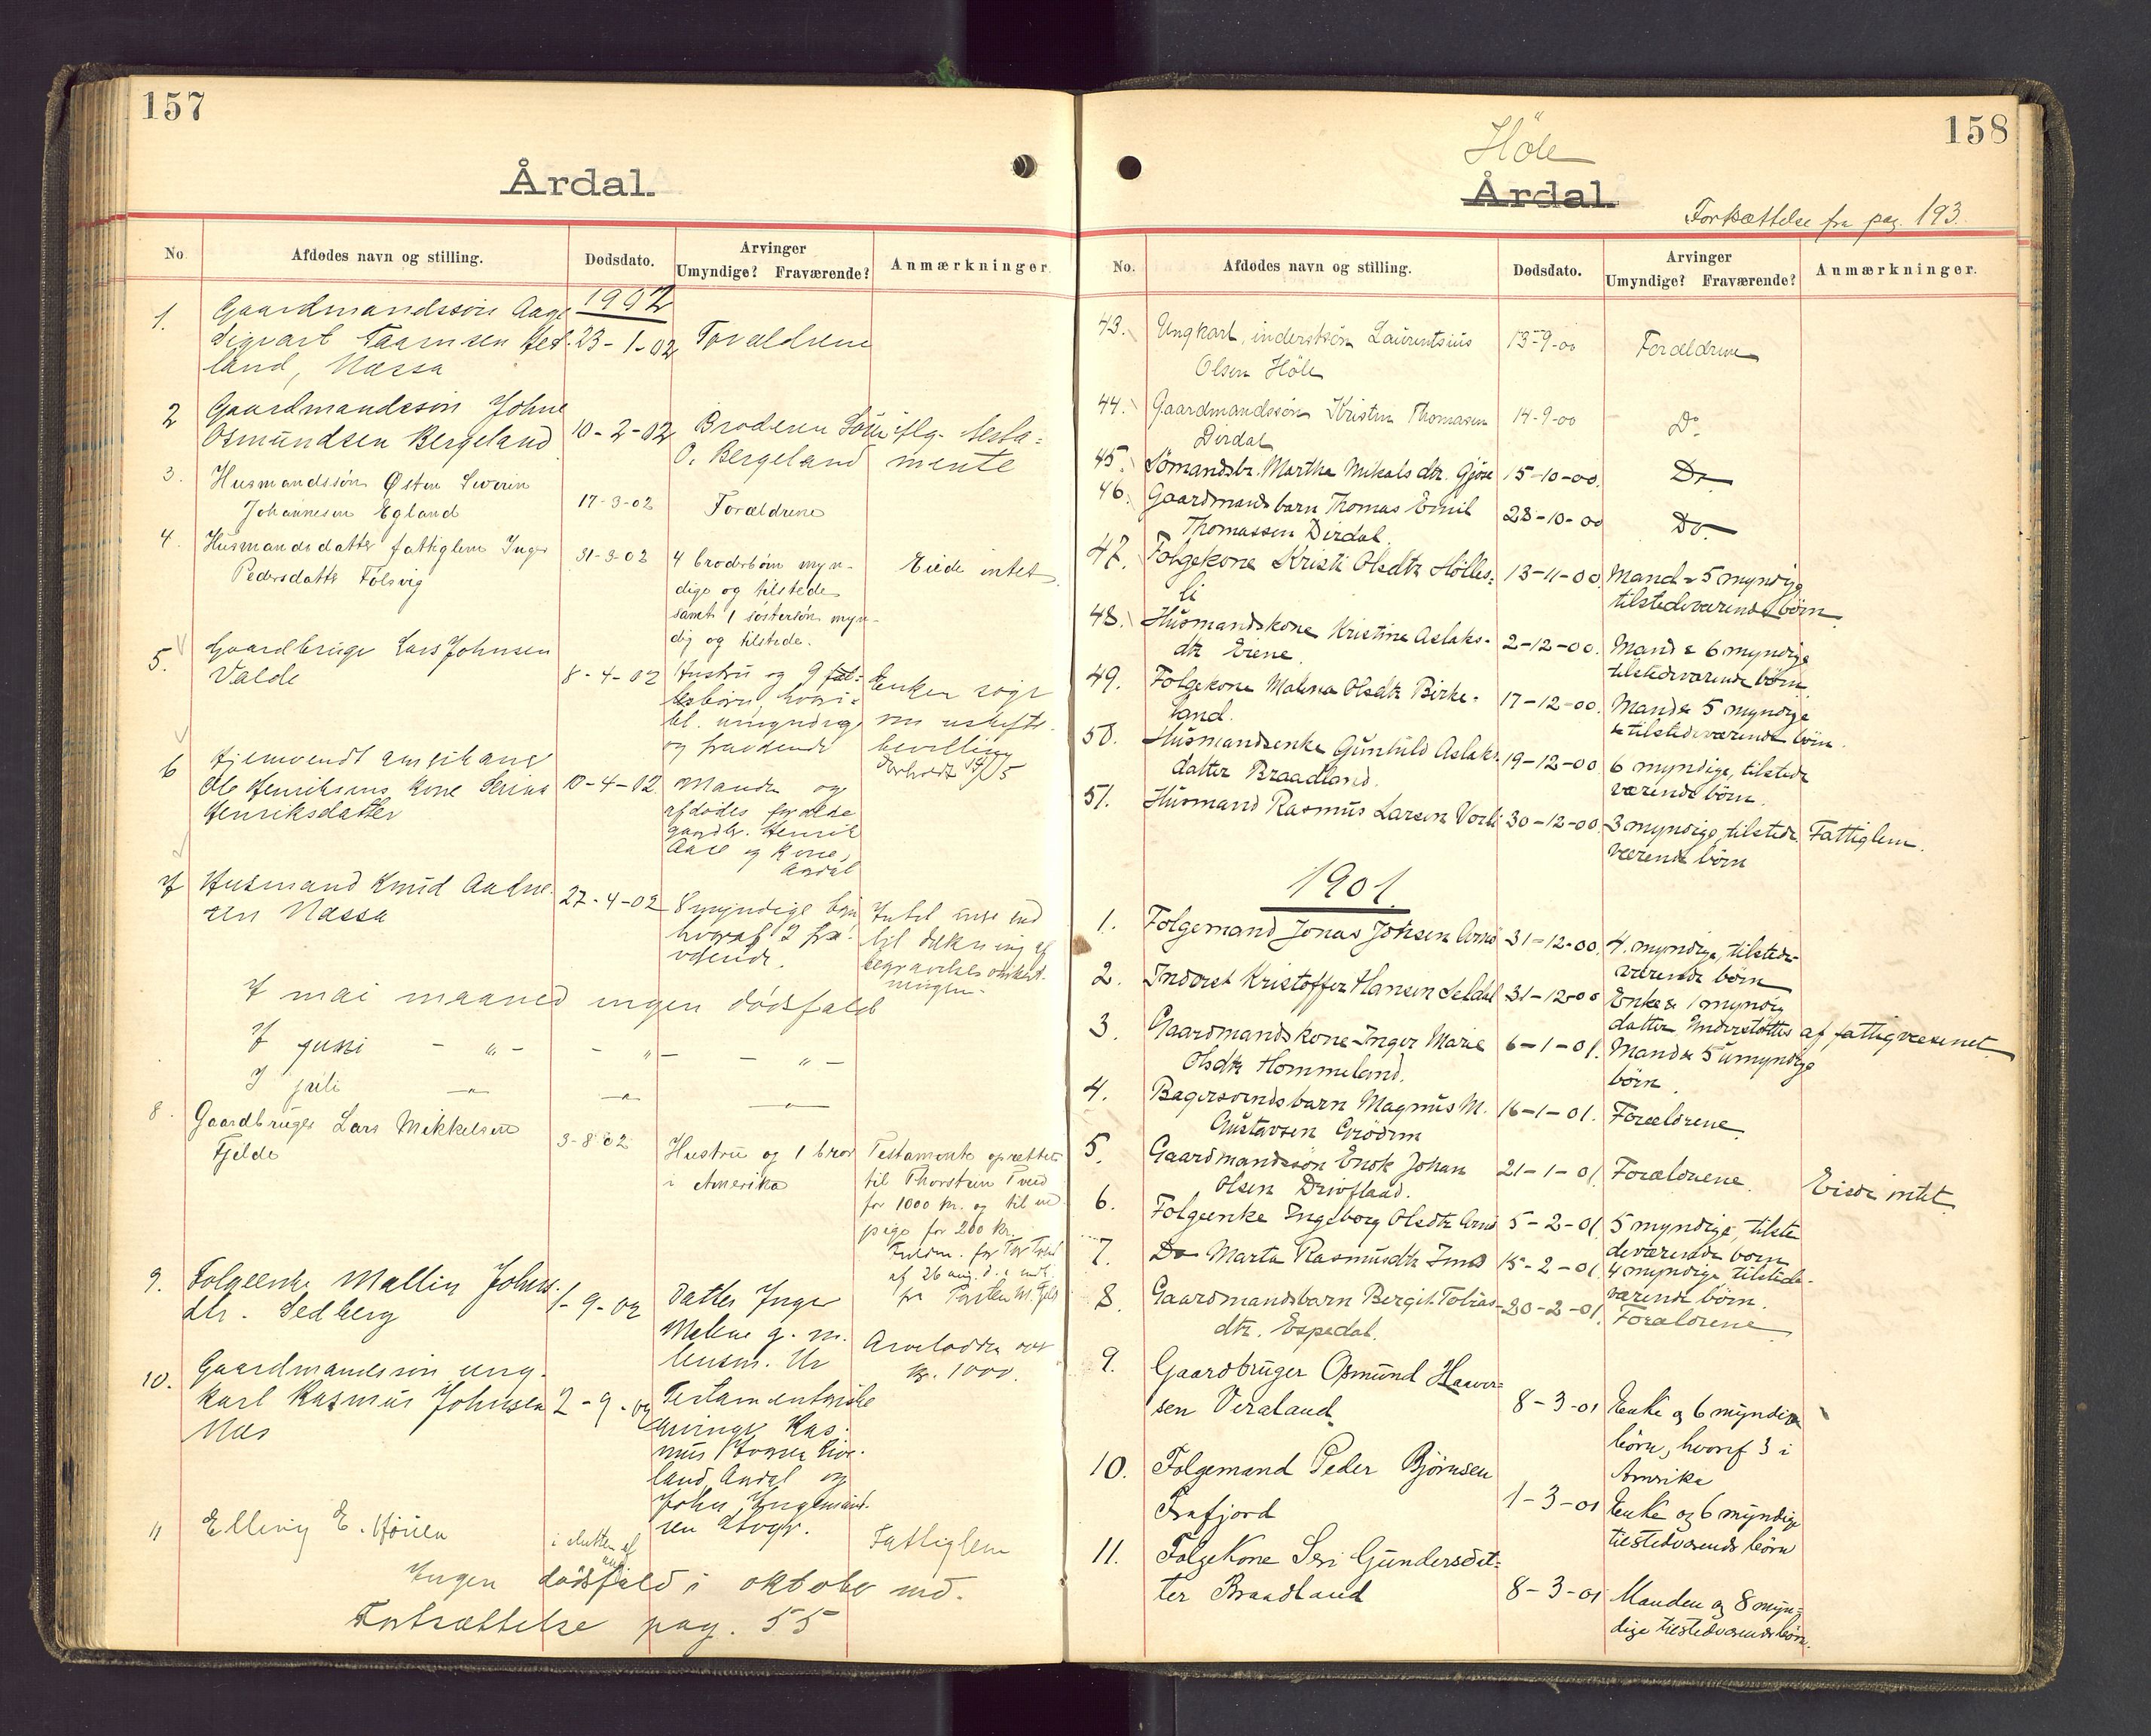 157
Årdal.
No
Afdødes navn og stilling.
Dødsdato.
Arvinger
Umyndige? Fraværende?
Anmærkninger.
1902
1. Gaardmandssøn Aage
23-1-02 Forældrene
land, Næssa
2 Gaardmandssøn Johne
Osmundsen Bergeland 10-2-02 Broderen
O. Bergeland mente
3. Husmandssøn Østen Severin
Johannesen Egland 17-3-02 Forældrene
4. Husmandsdatter fattiglem Inger
Pedersdatter Tølsvig 31-3-02 4 broderbørn myn-
dige og tilstede
samt 1 søstersøn myn-
dig og tilstede.
Eiede intet
5. Gaardbruger Lars Johnsen
Valde 8-4-02 Hustru og 9 fæl-
lesbørn, hvori-
bl. umyndige
og fraværende
Enken søger
om uskifte-
bevilling
6 Hjemvendt amerikaner
Ole Henriksens kone Serina
Henriksdatter 10-4-02 Manden og
afdødes forældre
gaardbr. Henrik
og kone,
Årdal
7 Husmand Knud Aadne-
sen Næssa 27-4-02 8 myndige børn
hvoraf 2 fra-
værende.
Intet uden end
til dækning af
begravelsesomkost-
ningen.
I mai maaned ingen dødsfald
I juni - " - - " - - " -
I juli - " - - " - - " -
8. Gaardbruger Lars Mikkelsen
Fjelde 3-8-02 Hustru og 1 bror
i Amerika
Testamente oprettet
til Thorstein Tveid
for 1000 kr. og til en
pige for 200 kr.
af 26 aug. d. a. indt.
9. Folgeenke Mallin Johns-
dtr. Sedberg 1-9-02 Datter Inger
Malene g. m.
lensm. Ur
Arvelodden over
kr. 1000.
10. Gaardmandssøn ung-
karl Rasmus Johnsen 2-9-02
Næs
Testamentariske
arvinge Ras-
mus
land, Årdal og
John Ingemund-
sen
11 Elling E. i slutten af
aug
Fattiglem
Ingen dødsfald i oktober md.
Fortsættelse pag. 55
158
Höle
Årdal.
Fortsættelse fra pag. 193.
No.
Afdødes navn og stilling.
Dødsdato.
Arvinger
Umyndige? Fraværende?
Anmærkninger.
43. Ungkarl, inderstsøn Laurentsius
Olsen Höle 13-9-00 Forældrene
44. Gaardmandssøn Kristen Thomasen
Dirdal 14-9-00 Do.
45. Sömandsbr. Marthe Mikals dtr. Gjöse 15-10-00. Do
46. Gaardmandsbarn Thomas Emil
Thomassen Dirdal. 28-10-00 Do.
47. Folgekone Kristi Olsdtr Hölles-
li 13-11-00. Mand & 5 myndige
tilstedeværende börn
48. Husmandskone Kristine Aslaks-
dtr Eiene. 2-12-00. Mand & 6 myndige
tilstedeværende börn.
49. Folgekone Malena Olsdtr Birke-
land. 17-12-00. Mand & 5 myndige
& tilstedeværende börn.
50. Husmandsenke Gunhild Aslaks-
datter Braadland. 19-12-00 6 myndige, tilstede
værende börn.
51. Husmand Rasmus Larsen Vorli 30-12-00. 3 myndige, tilstede
værende börn
Fattiglem.
1901.
1. Folgemand Jonas Johsen Ims 31-12-00. 4. myndige, tilstede-
værende börn
2. Inderst Kristoffer Hansen Seldal 31-12-00 Enke & 1 myndig
datter. Understöttes af fattigvæsenet
3. Gaardmandskone Inger Marie
Olsdtr Hommeland. 6-1-01. Mand & 5 umyndige
börn.
4. Bagersvendsbarn Magnus M.
Gustavsen Grödem 16-1-01. Forældrene.
5. Gaardmandssön Enok Johan
Olsen Drivflaad. 21-1-01 Forældrene. Eiede intet
6. Folgeenke Ingeborg Olsdtr Ims 5-2-01 5 myndige, tilste
deværende born
7. Do Marta Rasmusdtr Ims 15-2-01 4 myndige, tilstede-
værende börn.
8. Gaardmandsbarn Bergit Tobias-
dtr. Espedal. 20-2-01. Forældrene
9. Gaardbruger Osmund Haaver-
sen Veraland 8-3-01 Enke og 6 myndige
börn, hvoraf 3 i
Amerika
10. Folgemand Peder Björnsen
Frafjord 1-3-01 Enke og 6 myndige
tilstedværende börn
11. Folgekone Seri Gundersdat-
ter Braadland 8-3-01 Manden og 8 myn-
dige tilstedværende börn.